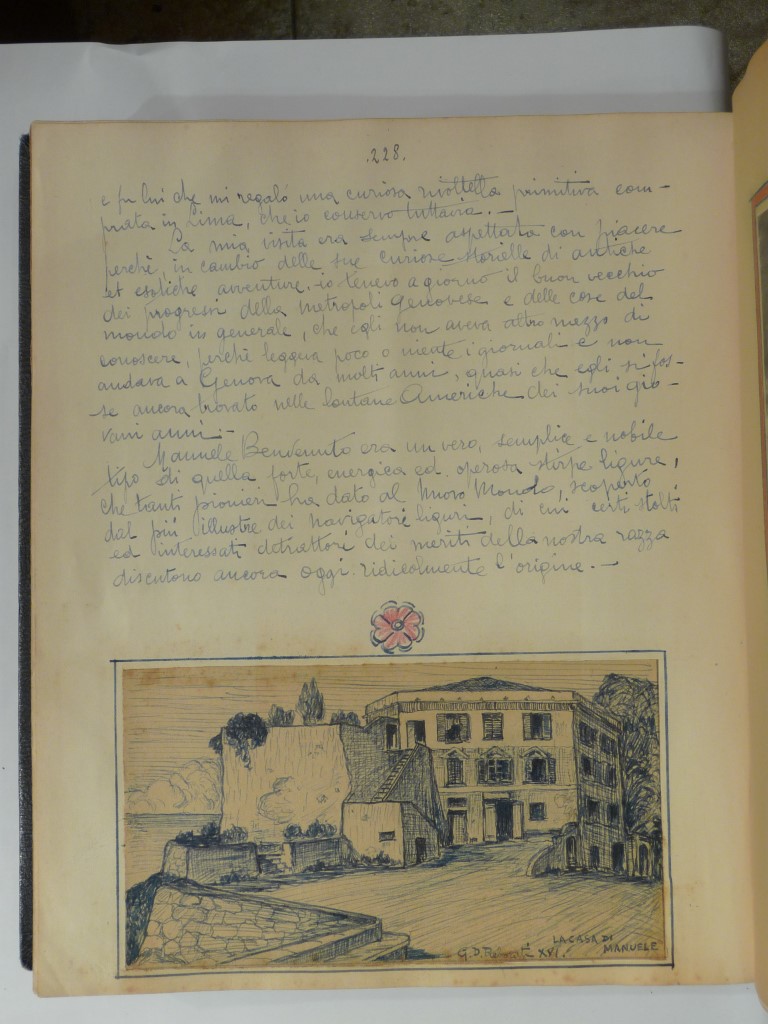 .228.
e fu lui che mi regalò una curiosa rivoltella primitiva com-
prata in Lima, che io conservo tuttavia.-
La mia visita era sempre aspettata con piacere
perchè, in cambio delle sue curiose storielle di antiche
et esotiche avventure, io tenevo a giorno il buon vecchio
dei progressi della metropoli genovese e delle cose del
mondo in generale, che egli non aveva altro mezzo di
conoscere, perchè leggeva poco o niente i giornali e non
andava a Genova da molti anni, quasi che egli si fos-
se ancora trovato nelle lontane Americhe dei suoi gio-
vani anni.-
Manuele Benvenuto era un vero, semplice e nobile
tipo di quella forte, energica ed operosa stirpe ligure,
che tanti pionieri ha dato al Nuovo Mondo, scoperto
dal più illustre dei navigatori liguri, di cui certi stolti
ed interessati detrattori dei meriti della nostra razza
discutono ancora oggi ridicolmente l'origine.-
LA CASA DI
MANUELE
G.D. XVI.